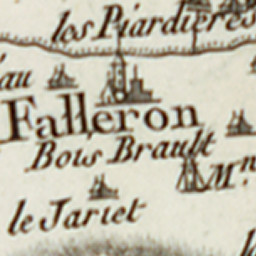 les Piardieres
au
Falleron
Bois Brault
Mⁿ
le Jariet